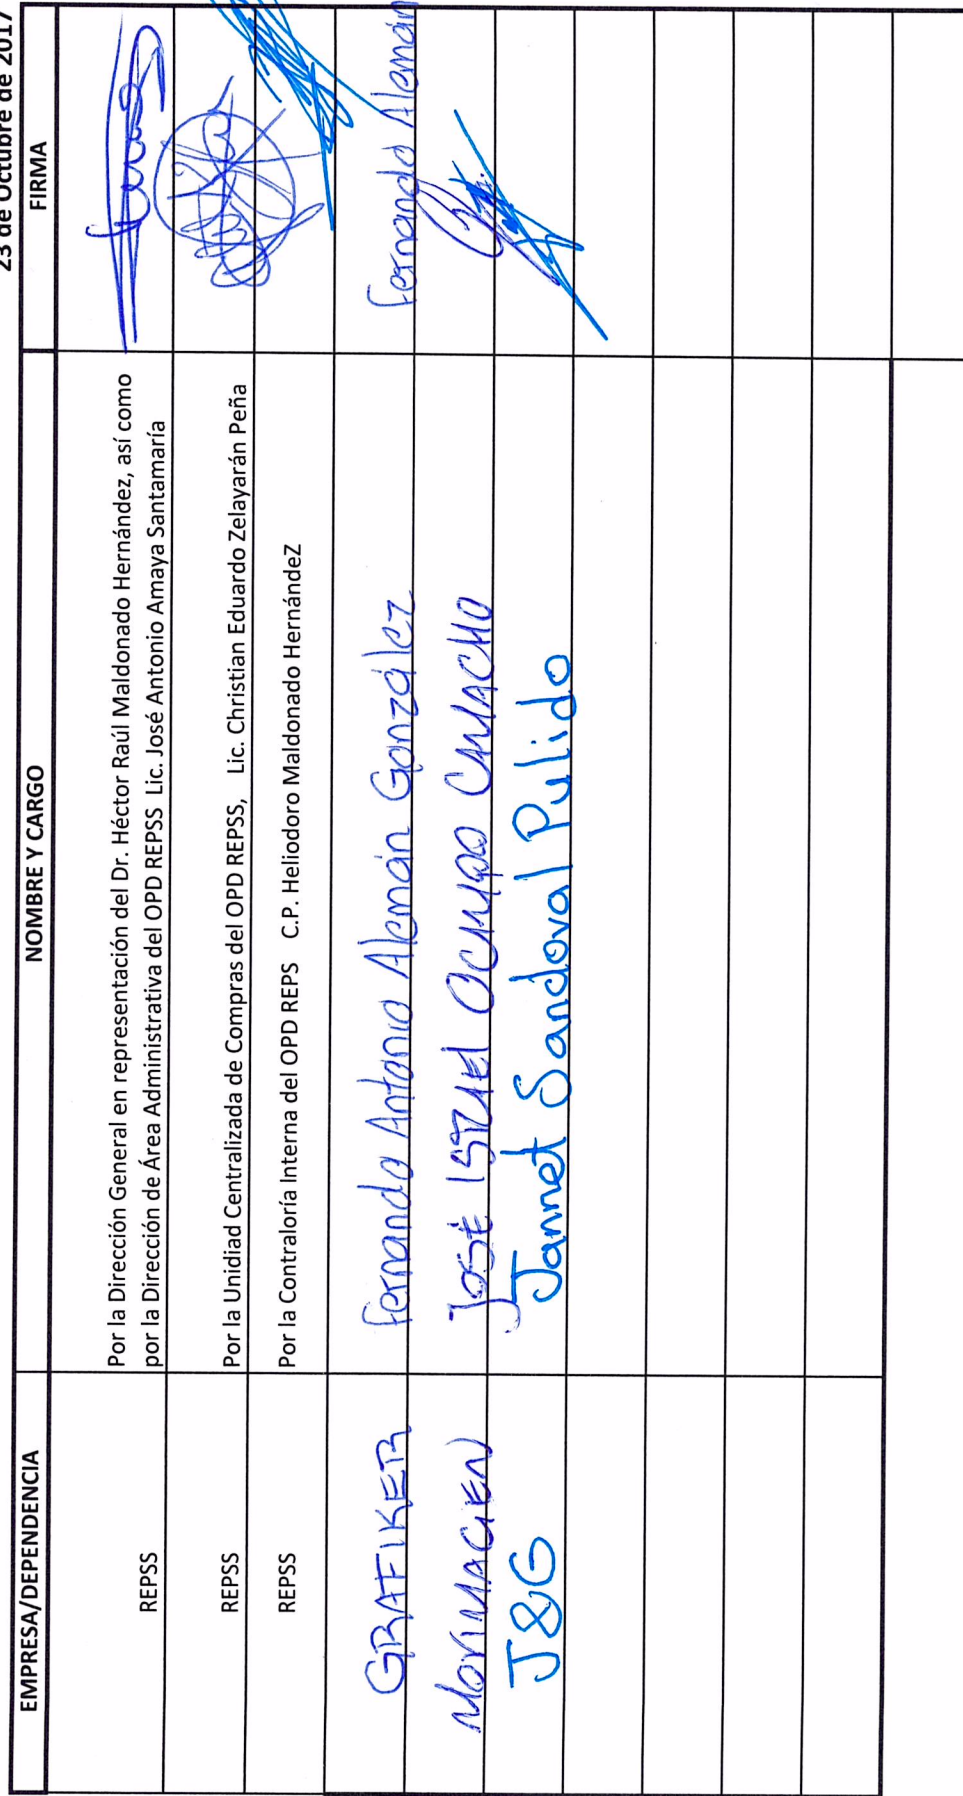 23 de Octubre de 2017
EMPRESA/DEPENDENCIA NOMBRE Y CARGO FIRMA
REPSS Por la Dirección General en representación del Dr. Héctor Raúl Maldonado Hernández, así como
por la Dirección de Área Administrativa del OPD REPSS Lic. José Antonio Amaya Santamaría
REPSS Por la Unidiad Centralizada de Compras del OPD REPSS, Lic. Christian Eduardo Zelayarán Peña
REPSS Por la Contraloría Interna del OPD REPS C.P. Heliodoro Maldonado HernándeZ
GRAFIKER Fernando Antonio Alemán González Fernando Alemán
MOVIMAGEN JOSÉ ISRAEL OCAMPO CAMACHO
J&G Jannet Sandoval Pulido